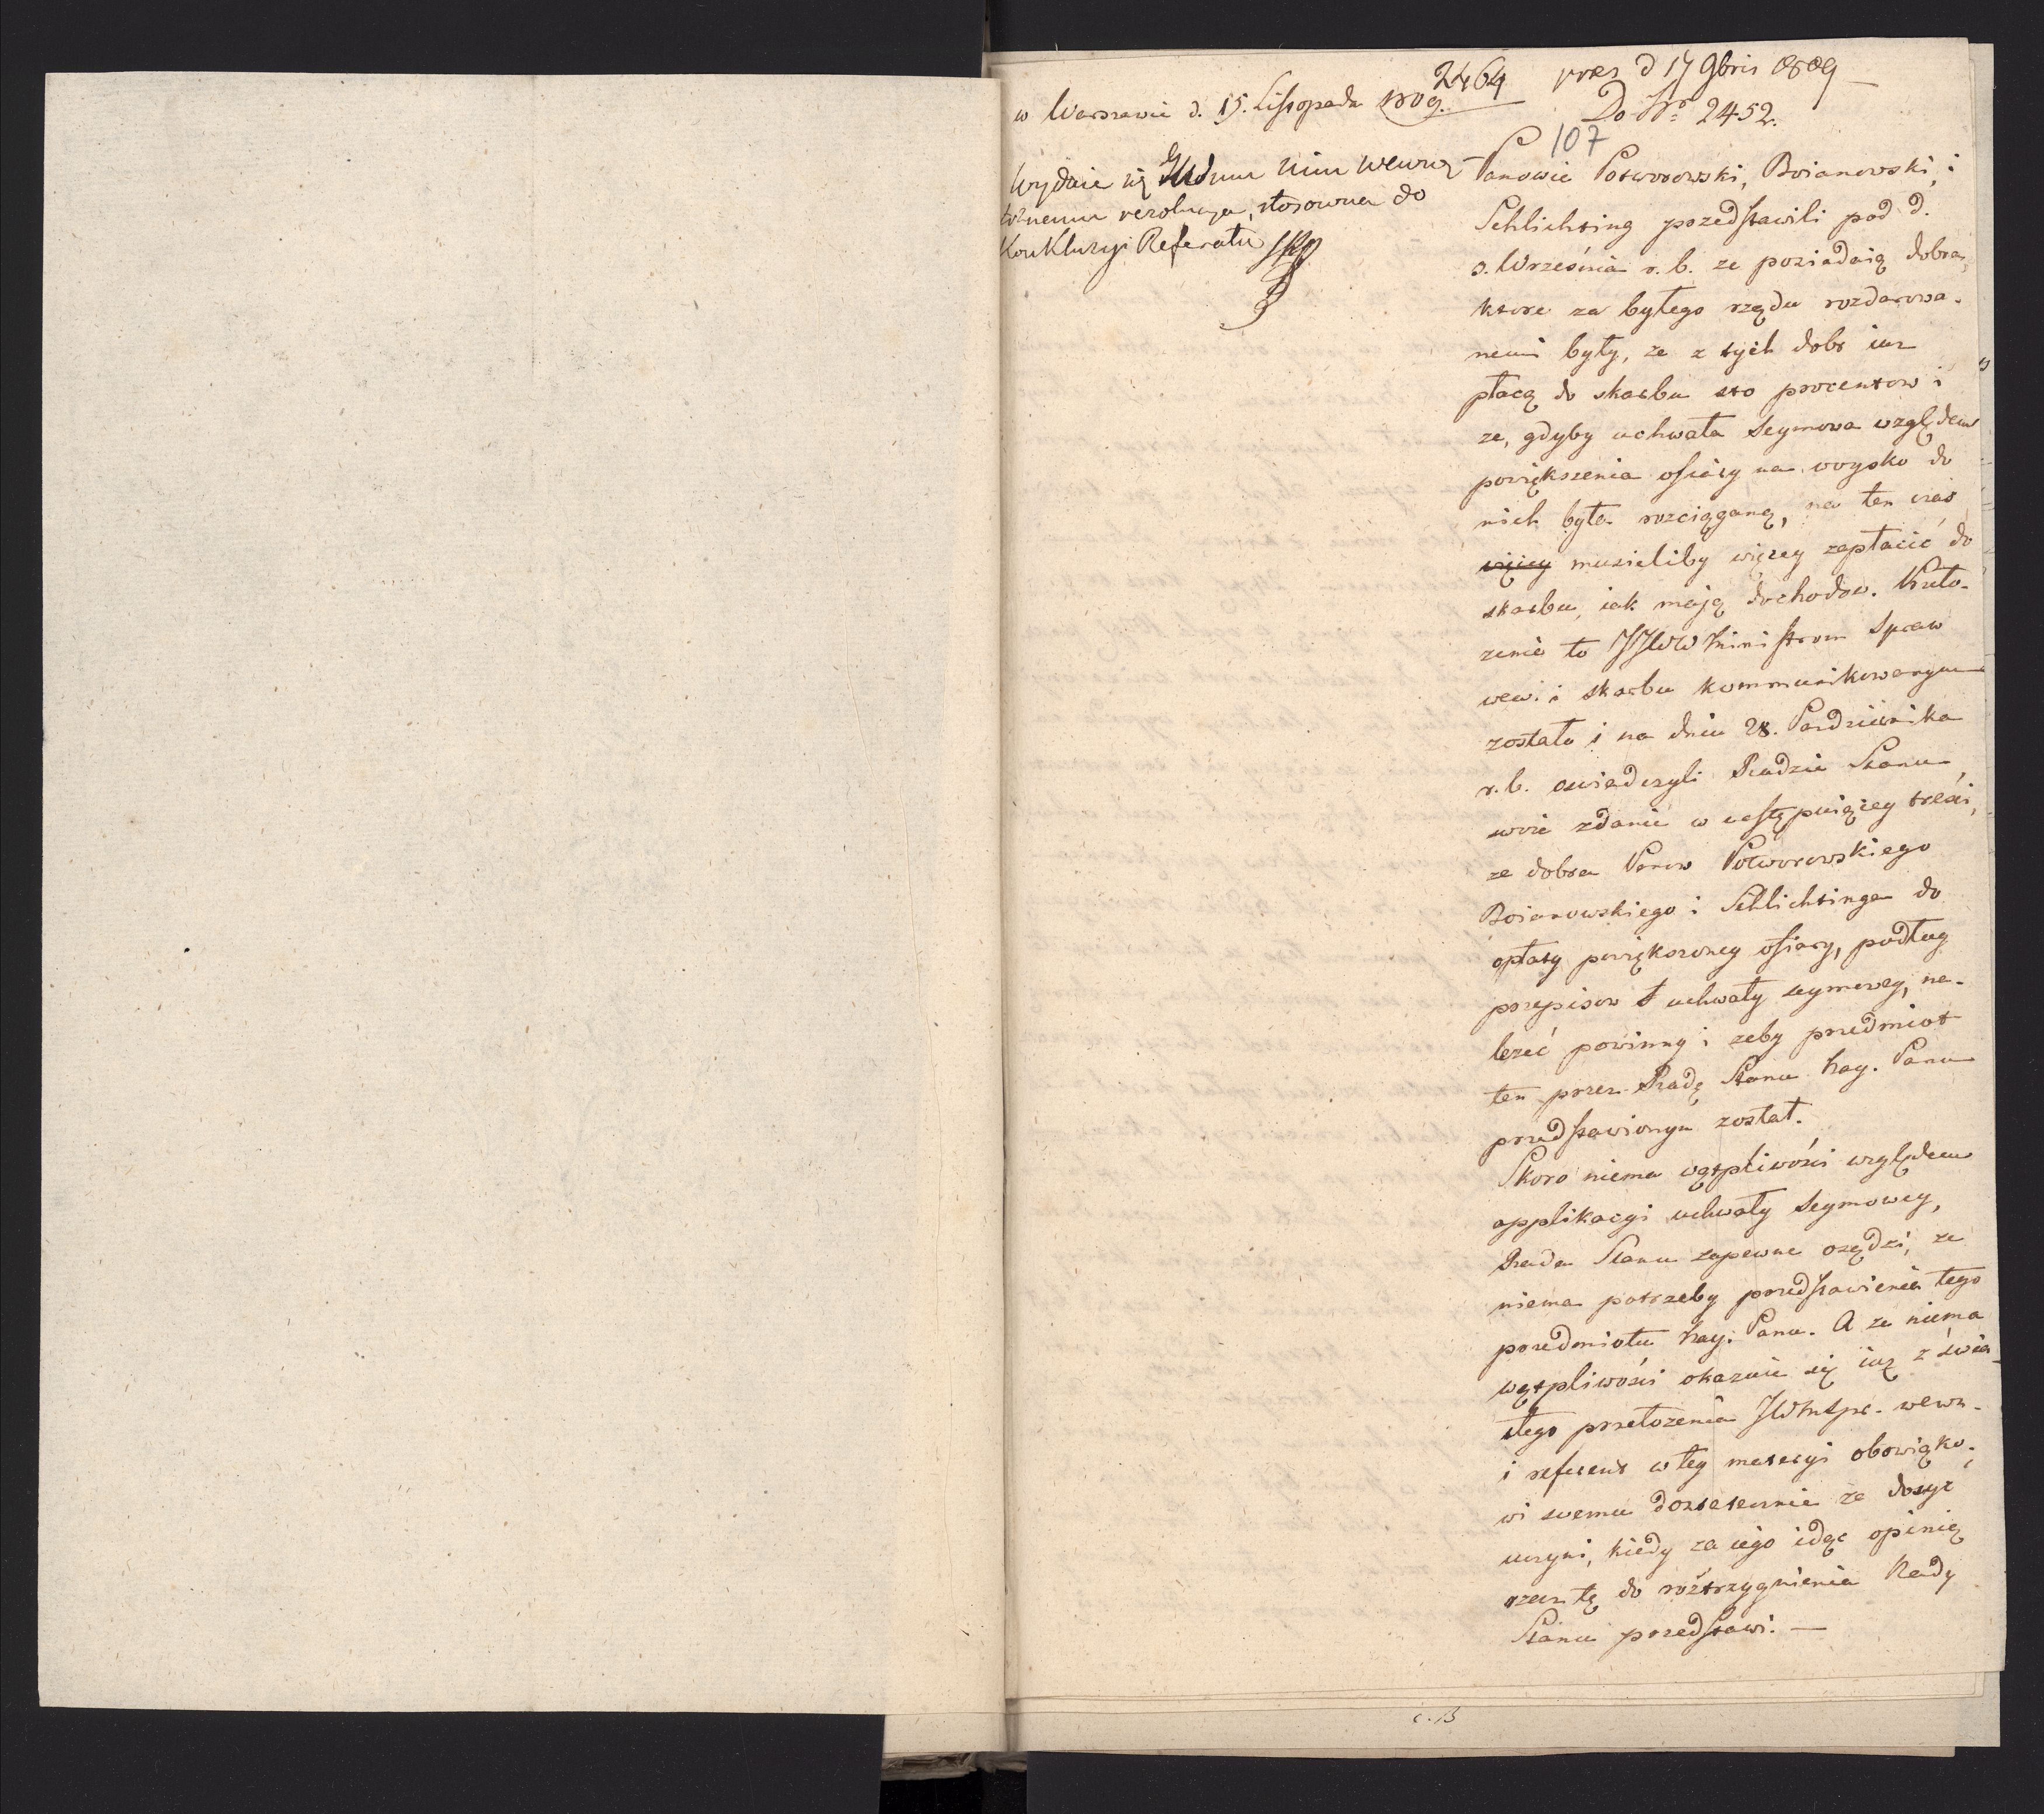 w Warszawie d. 15. Listopada 1809.
2464
prez d 17 9bris 1809
Do Nro 2452.
107
Wydaie się JWdmu Min wewnę
trznemu rezolucya, stosowna do
Konkluzyi Referatu
Panowie Potworowski, Boianowski, i
Schlichting przedstawili pod d.
3. Września r. b. ze posiadaią dobra,
ktore za byłego rządu rozdarowa-
nemi były, ze z tych dobr iuz
płacą do skarbu sto procentow i
ze, gdyby uchwała Seymowa względem
powiększenia ofiary na woysko do
nich była rozciąganą, na ten czas
więcey musieliby więcey zapłacić do
skarbu, iak mają dochodow. Przeło-
zenie to JJWW Ministrom Spraw
wew. i skarbu kommunikowanym
zostało i na dniu 28. Pazdziernika
r. b. oswiadczyli Radzie Stanu,
swoie zdanie w następuiącey treści,
ze dobra Panow Potworowskiego
Boianowskiego i Schlichtinga do
opłaty powiększoney ofiary, podług
przepisow uchwały seymowey, na-
lezeć powinny i zeby przedmiot
ten przez Radę Stanu Nay. Panu
przedstawionym został.
Skoro niema wątpliwości względem
applikacyi uchwały Seymowey,
Rada Stanu zapewne osądzi, ze
niema potrzeby przedstawienia tego
przedmiotu Nay. Panu. A ze niema
wątpliwości okazuie się iuz z świa-
tłego przełozenia JWMSpr. wewn.
i referent w tey materyi obowiązko-
wi swemu dostatecznie ze dosyć
uczyni, kiedy za iego idąc opinią
rzecz tę do rozstrzygnienia Rady
Stanu przedstawi. —
c. 13